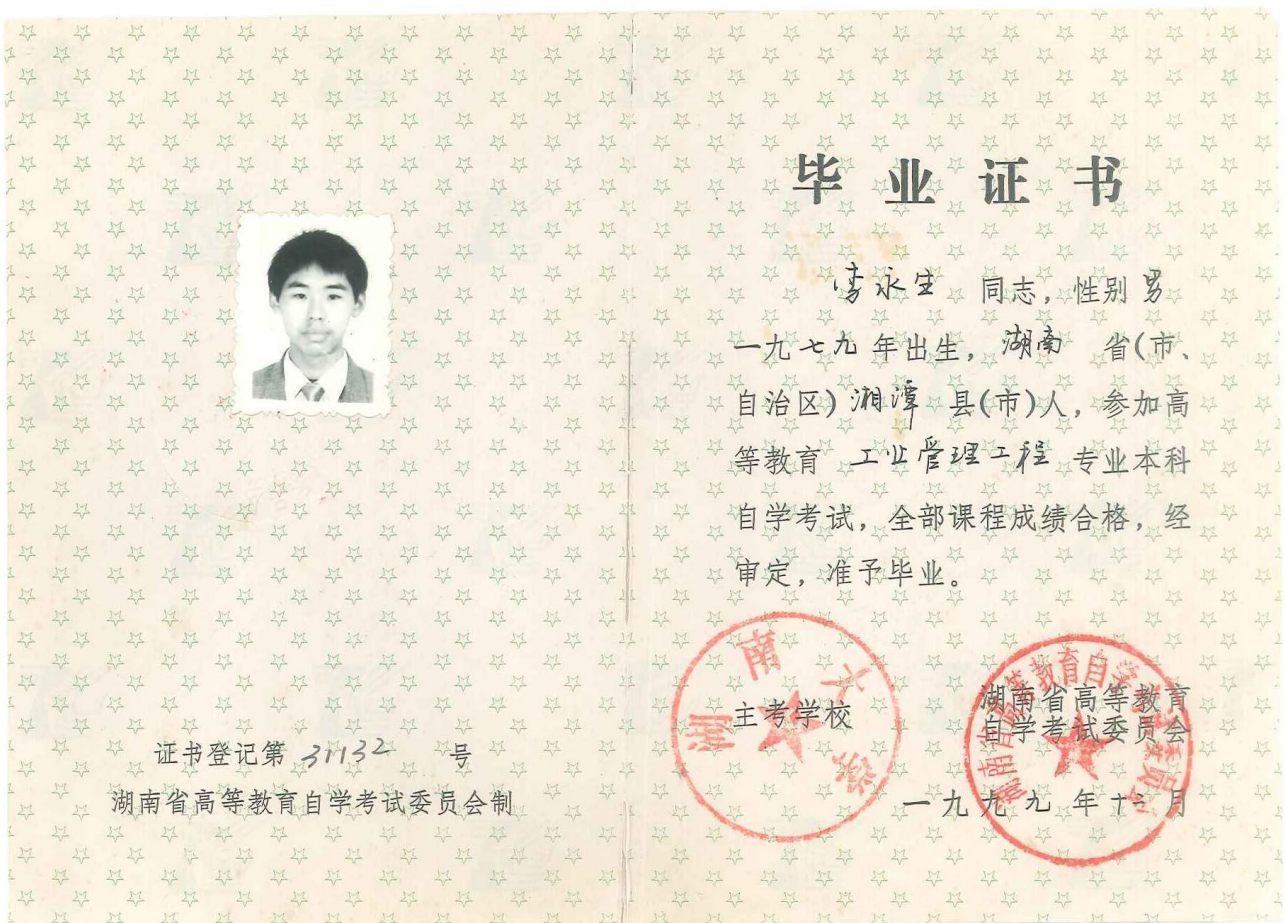 证书登记第 31132 号
湖南省高等教育自学考试委员会制
毕业证书
李永生 同志，性别 男
一九七九年出生，湖南 省(市、
自治区)湘潭 县(市)人，参加高
等教育 工业管理工程 专业本科
自学考试，全部课程成绩合格，经
审定，准予毕业。
湖南大学
主考学校
湖南省高等教育自学考试委员会
湖南省高等教育
自学考试委员会
一九九九年十二月